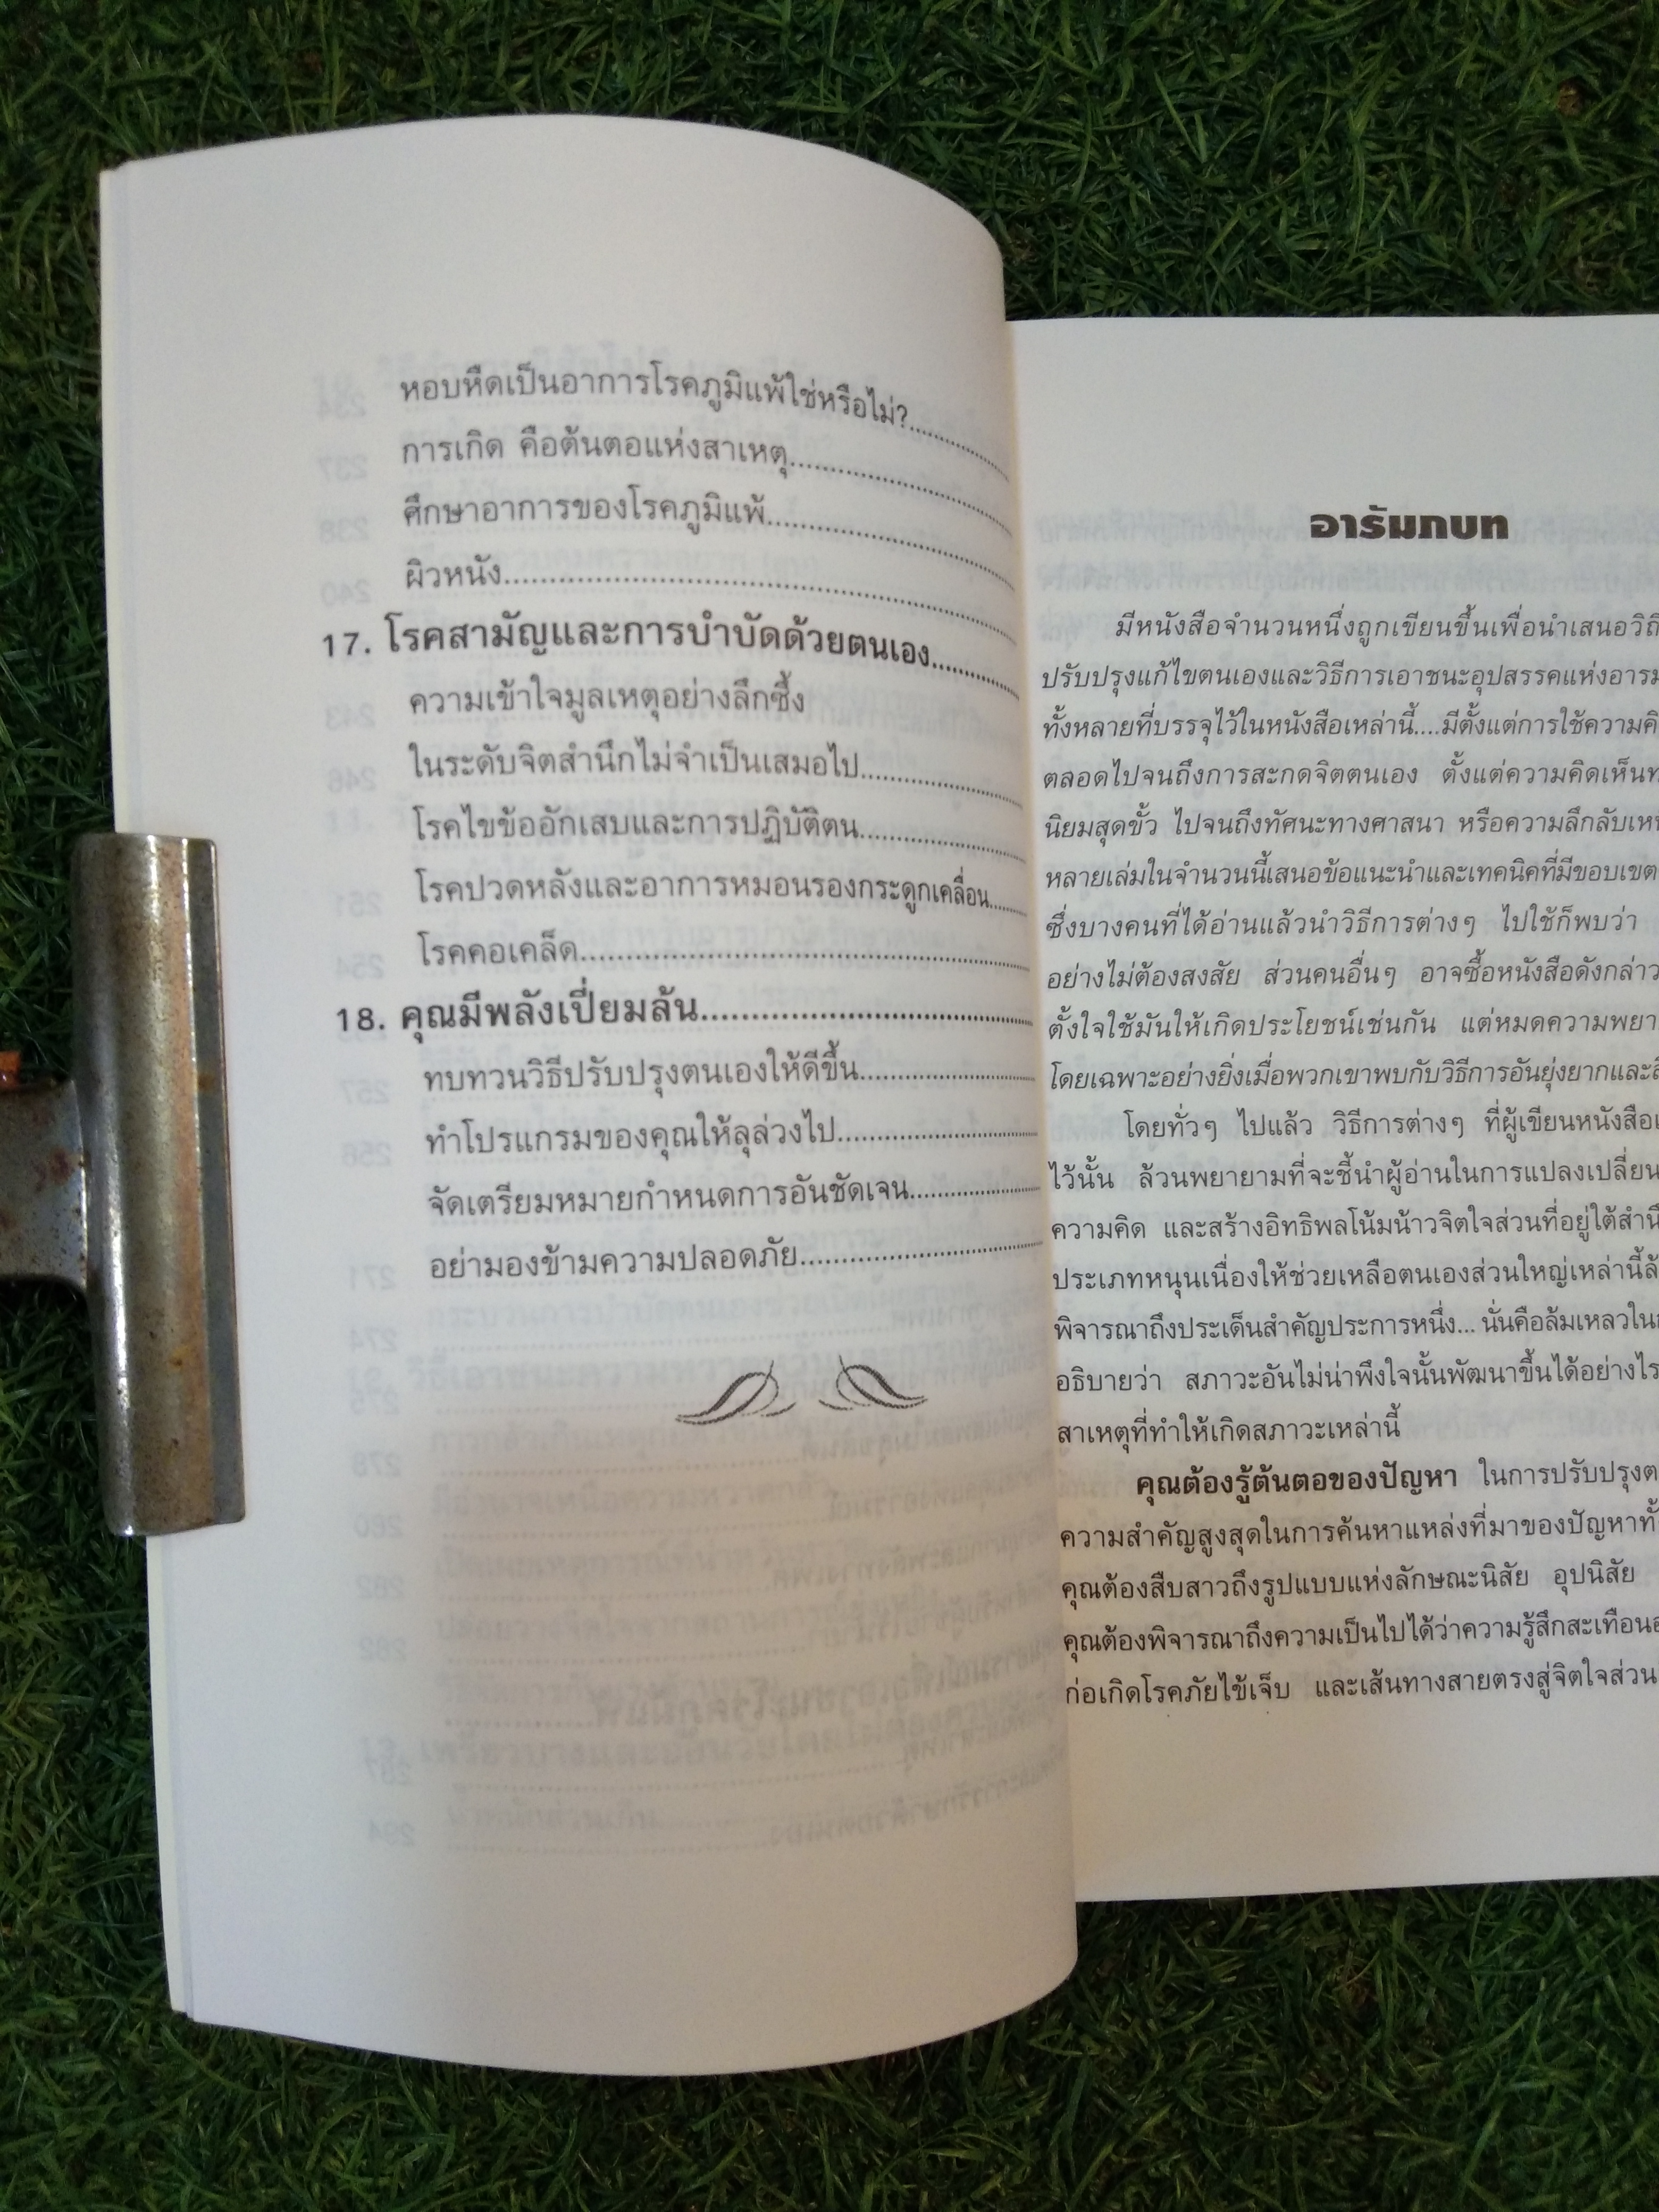 หอบหืดเป็นอาการโรคภูมิแพ้ใช่หรือไม่?
การเกิด คือต้นตอแห่งสาเหตุ
ศึกษาอาการของโรคภูมิแพ้
ผิวหนัง
17. โรคสามัญและการบำบัดด้วยตนเอง
ความเข้าใจมูลเหตุอย่างลึกซึ้ง
ในระดับจิตสำนึกไม่จำเป็นเสมอไป
โรคไขข้ออักเสบและการปฏิบัติตน
โรคปวดหลังและอาการหมอนรองกระดูกเคลื่อน
โรคคอเคล็ด
18. คุณมีพลังเปี่ยมล้น
ทบทวนวิธีปรับปรุงตนเองให้ดีขึ้น
ทำโปรแกรมของคุณให้ลุล่วงไป
จัดเตรียมหมายกำหนดการอันชัดเจน
อย่ามองข้ามความปลอดภัย
อารัมภบท
มีหนังสือจำนวนหนึ่งถูกเขียนขึ้นเพื่อนำเสนอวิถี
ปรับปรุงแก้ไขตนเองและวิธีการเอาชนะอุปสรรคแห่งอารม
ทั้งหลายที่บรรจุไว้ในหนังสือเหล่านี้....มีตั้งแต่การใช้ความคิ
ตลอดไปจนถึงการสะกดจิตตนเอง ตั้งแต่ความคิดเห็น
นิยมสุดขั้ว ไปจนถึงทัศนะทางศาสนา หรือความลึกลับเห
หลายเล่มในจำนวนนี้เสนอข้อแนะนำและเทคนิคที่มีขอบเขต
ซึ่งบางคนที่ได้อ่านแล้วนำวิธีการต่างๆ ไปใช้ก็พบว่า
อย่างไม่ต้องสงสัย ส่วนคนอื่นๆ อาจซื้อหนังสือดังกล่าว
ตั้งใจใช้มันให้เกิดประโยชน์เช่นกัน แต่หมดความพยา
โดยเฉพาะอย่างยิ่งเมื่อพวกเขาพบกับวิธีการอันยุ่งยากและ
โดยทั่วๆ ไปแล้ว วิธีการต่างๆ ที่ผู้เขียนหนังสือ
ไว้นั้น ล้วนพยายามที่จะชี้นำผู้อ่านในการแปลงเปลี่ยน
ความคิด และสร้างอิทธิพลโน้มน้าวจิตใจส่วนที่อยู่ใต้สำนึ
ประเภทหนุนเนื่องให้ช่วยเหลือตนเองส่วนใหญ่เหล่านี้ล้
พิจารณาถึงประเด็นสำคัญประการหนึ่ง... นั่นคือล้มเหลวใน
อธิบายว่า สภาวะอันไม่น่าพึงใจนั้นพัฒนาขึ้นได้อย่างไร
สาเหตุที่ทำให้เกิดสภาวะเหล่านี้
คุณต้องรู้ต้นตอของปัญหา ในการปรับปรุงต
ความสำคัญสูงสุดในการค้นหาแหล่งที่มาของปัญหาทั้
คุณต้องสืบสาวถึงรูปแบบแห่งลักษณะนิสัย อุปนิสัย
คุณต้องพิจารณาถึงความเป็นไปได้ว่าความรู้สึกสะเทือน
ก่อเกิดโรคภัยไข้เจ็บ และเส้นทางสายตรงสู่จิตใจส่วน